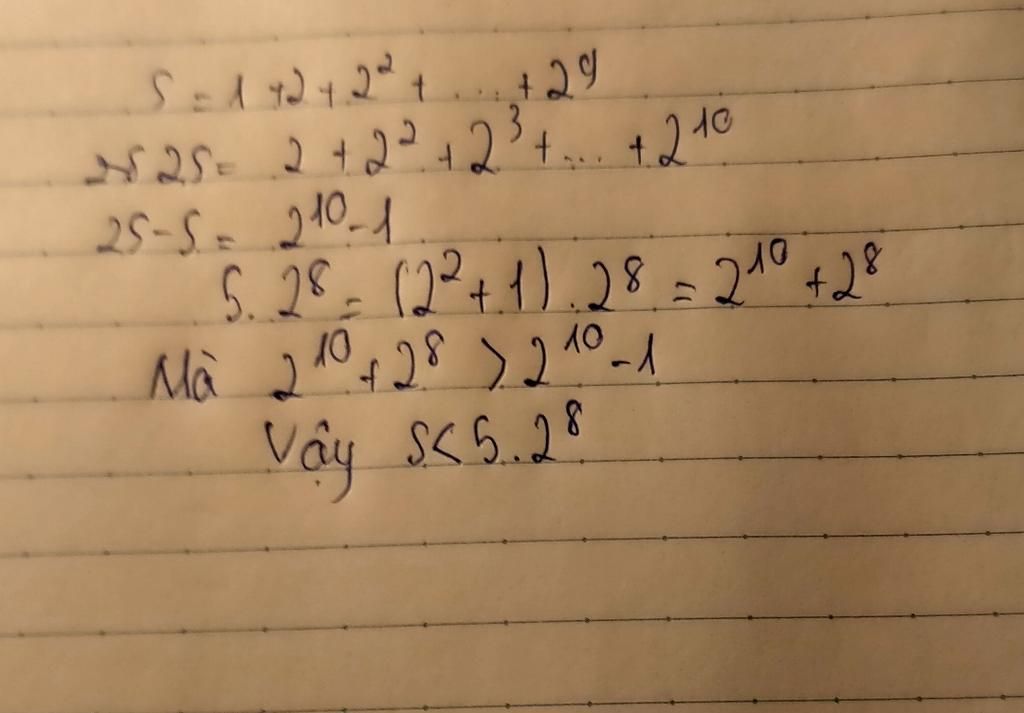 S = 1 + 2 + 2² + .... + 2⁹
2S = 2 + 2² + 2³ + ... + 2¹⁰
2S - S = 2¹⁰ - 1
5. 2⁸ = (2² + 1) . 2⁸ = 2¹⁰ + 2⁸
Mà 2¹⁰ + 2⁸ > 2¹⁰ - 1
Vậy S < 5. 2⁸